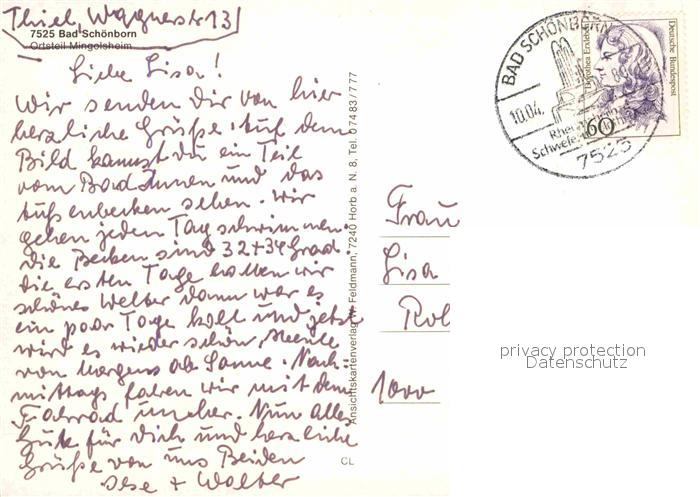 Thiel, Wagnerstr 13
7525 Bad Schönborn
Ortsteil Mingolsheim
Liebe Lisa!
Wir senden Dir von hier
herzliche Grüße. Auf dem
Bild kannst du ein Teil
vom Bad Innen und das
Außenbecken sehen. Wir
gehen jeden Tag schwimmen.
die Becken sind 32+34 Grad.
die ersten Tage hatten wir
schönes Wetter dann war es
ein paar Tage kalt und jetzt
wird es wieder schön, Heute
von Morgens ab Sonne. Nach-
mittags fahren wir mit dem
Fahrrad umher. Nun alles
Gute für Dich und herzliche
Grüße von uns Beiden
Ilse + Walter
CL
Ansichtskartenverlag W. Feldmann, 7240 Horb a. N. 8, Tel. 07483/777
BAD SCHÖNBORN
10.04.
7525
Dorothea Erxleben
Deutsche Bundespost
60
Frau
Lisa
Rol
1000
privacy protection
Datenschutz